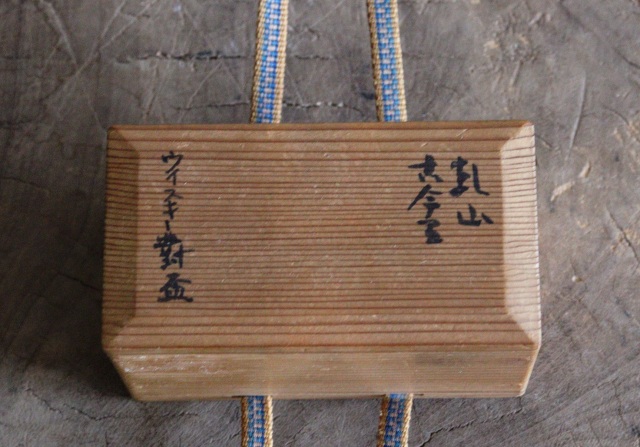 乾山
古今
ウイスキー對盃